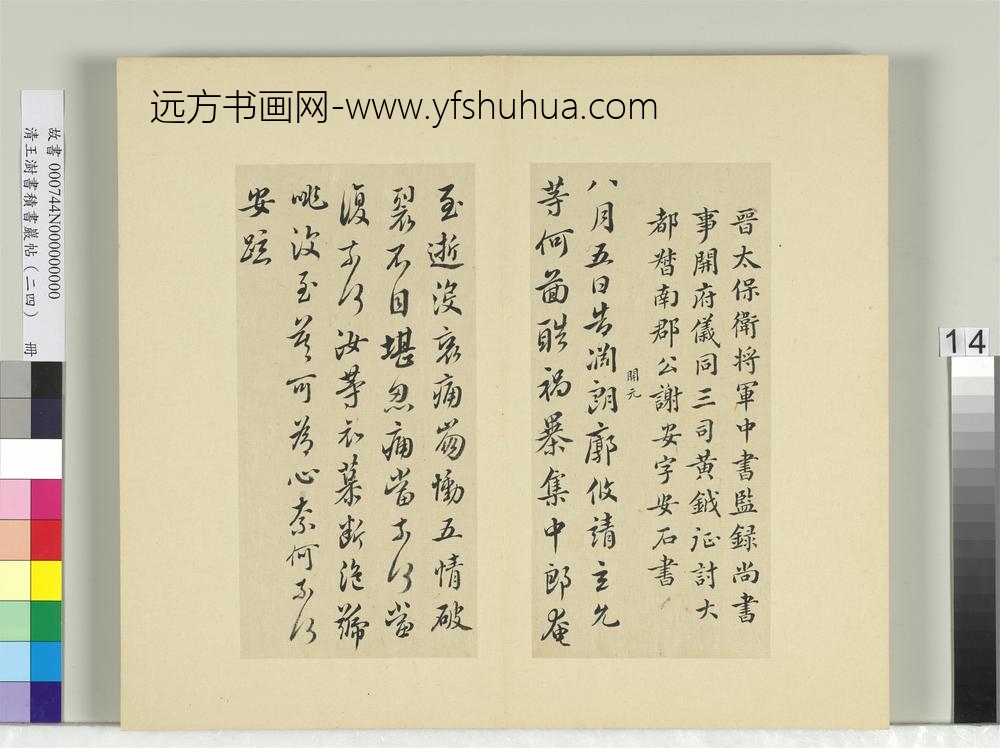 远方书画网-www.yfshuhua.com
晉太保衛將軍中書監録尚書
事開府儀同三司黃鉞征討大
都督南郡公謝安字安石書
開元
八月五日告淵朗廓攸靖玄允
等何啚酷禍暴集中郎奄
至逝沒哀痛崩慟五情破
裂不自堪忍痛當奈何當
復奈何汝等哀慕斷絕號
咷深至豈可為心奈何奈何
安疏
故書 000744N000000000
清王澍書積書巖帖（二四） 冊
14